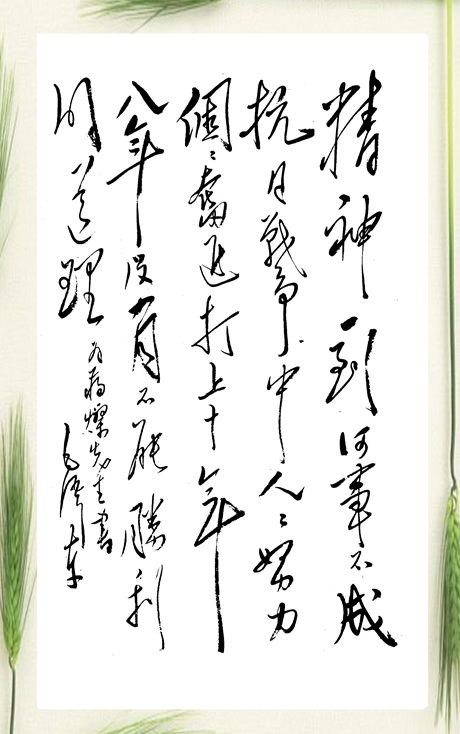 精神一到何事不成
抗日戰争中人々努力
個々奮進打上十年
八年没有不能勝利
的道理
为燦先生書
毛澤東